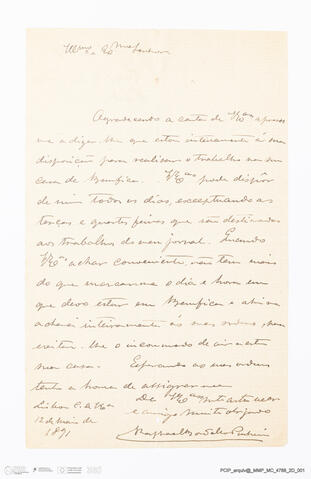 Illmo e Exmo Senhor
Agradecendo a carta de V. Exa apresso
me a dizer-lhe que estou inteiramente á sua
disposição para realisar o trabalho na sua
casa de Bemfica. V. Exa pode dispôr
de mim todos os dias exceptuando as
terças e quartas feiras que são destinadas
aos trabalhos do meu jornal. Quando
V. Exa achar conveniente, não tem mais
do que marcar-me o dia e hora em
que devo estar em Bemfica e ahi me
achará inteiramente ás suas ordens, para
evitar-lhe o incommodo de vir a esta
sua casa. Esperando as suas ordens
tenho a honra de assignar-me
De V. Exa
e amigo muito obrigado
Lisboa
12 de Maio de
1891
Raphael Bordallo Pinheiro
PCIP_arquiv@_MMP_MC_4788_2D_001